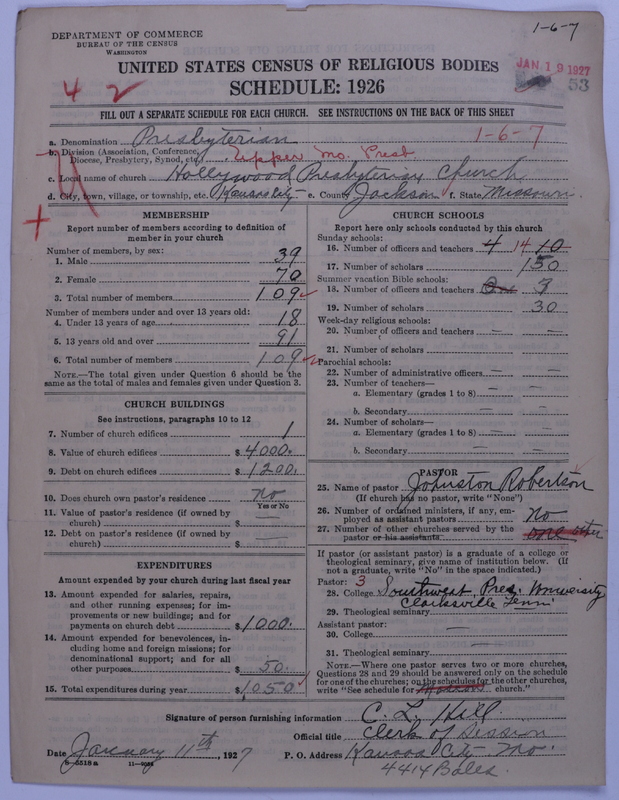 1-6-7
DEPARTMENT OF COMMERCE
BUREAU OF THE CENSUS
WASHINGTON
UNITED STATES CENSUS OF RELIGIOUS BODIES
JAN 19 1927
SCHEDULE: 1926
53
4 2
FILL OUT A SEPARATE SCHEDULE FOR EACH CHURCH. SEE INSTRUCTIONS ON THE BACK OF THIS SHEET
a. Denomination Presbyterian 1-6-7
b. Division (Association, Conference, Diocese, Presbytery, Synod, etc.) Upper Mo. Presb
c. Local name of church Hollywood Presbyterian Church
d. City, town, village, or township, etc. Kansas City e. County Jackson f. State Missouri
MEMBERSHIP
Report number of members according to definition of
member in your church
Number of members, by sex:
1. Male 39
2. Female 70
3. Total number of members 109
Number of members under and over 13 years old:
4. Under 13 years of age 18
5. 13 years old and over 91
6. Total number of members 109
NOTE.—The total given under Question 6 should be the
same as the total of males and females given under Question 3.
CHURCH BUILDINGS
See instructions, paragraphs 10 to 12
7. Number of church edifices 1
8. Value of church edifices $ 4000.
9. Debt on church edifices $ 1200.
10. Does church own pastor's residence No
Yes or No
11. Value of pastor's residence (if owned by
church) $ —
12. Debt on pastor's residence (if owned by
church) $ —
EXPENDITURES
Amount expended by your church during last fiscal year
13. Amount expended for salaries, repairs,
and other running expenses; for im-
provements or new buildings; and for
payments on church debt $ 1000.
14. Amount expended for benevolences, in-
cluding home and foreign missions; for
denominational support; and for all
other purposes $ 50.
15. Total expenditures during year $ 1050
CHURCH SCHOOLS
Report here only schools conducted by this church
Sunday schools:
16. Number of officers and teachers 4 14 10
17. Number of scholars 150
Summer vacation Bible schools:
18. Number of officers and teachers One 3
19. Number of scholars 30
Week-day religious schools:
20. Number of officers and teachers — —
21. Number of scholars — —
Parochial schools:
22. Number of administrative officers — —
23. Number of teachers—
a. Elementary (grades 1 to 8) — —
b. Secondary —
24. Number of scholars—
a. Elementary (grades 1 to 8) — —
b. Secondary —
PASTOR
25. Name of pastor Johnston Robertson
(If church has no pastor, write "None")
26. Number of ordained ministers, if any, em-
ployed as assistant pastors No
27. Number of other churches served by the
pastor or his assistants one other
If pastor (or assistant pastor) is a graduate of a college or
theological seminary, give name of institution below. (If
not a graduate, write "No" in the space indicated.)
Pastor: 3
28. College Southwest. Pres. University
Clarksville Tenn
29. Theological seminary
Assistant pastor:
30. College —
31. Theological seminary —
NOTE.—Where one pastor serves two or more churches,
Questions 28 and 29 should be answered only on the schedule
for one of the churches; on the schedules for the other churches,
write "See schedule for church."
Signature of person furnishing information C. L. Hill
Official title Clerk of Session
Date January 11th, 1927 P. O. Address Kansas City Mo.
8—5518 a 4414 Bales.